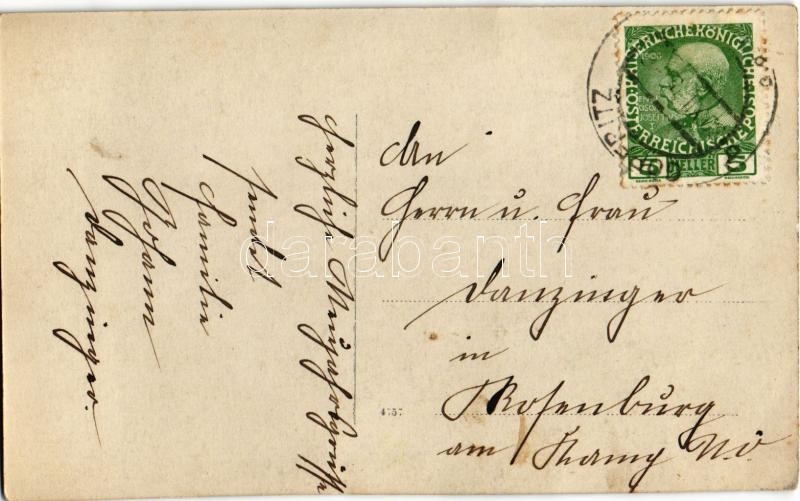 Herzliche Neujahrsgrüße
sendet
Familie
Johann
Danzinger.
An
Herrn u. Frau
Danzinger
in
Rosenburg
am Kamp NÖ
4757
KAISERLICHE KÖNIGLICHE
ÖSTERREICHISCHE POST
1908
5 HELLER 5
darabanth